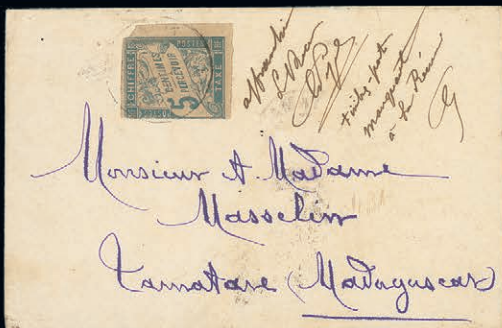 CHIFFRE
POSTES
TAXE
5
CENTIMES
À PERCEVOIR
affranchi
timbres-poste
manquant
à la Réunion
Monsieur & Madame
Masselin
Tamatave (Madagascar)